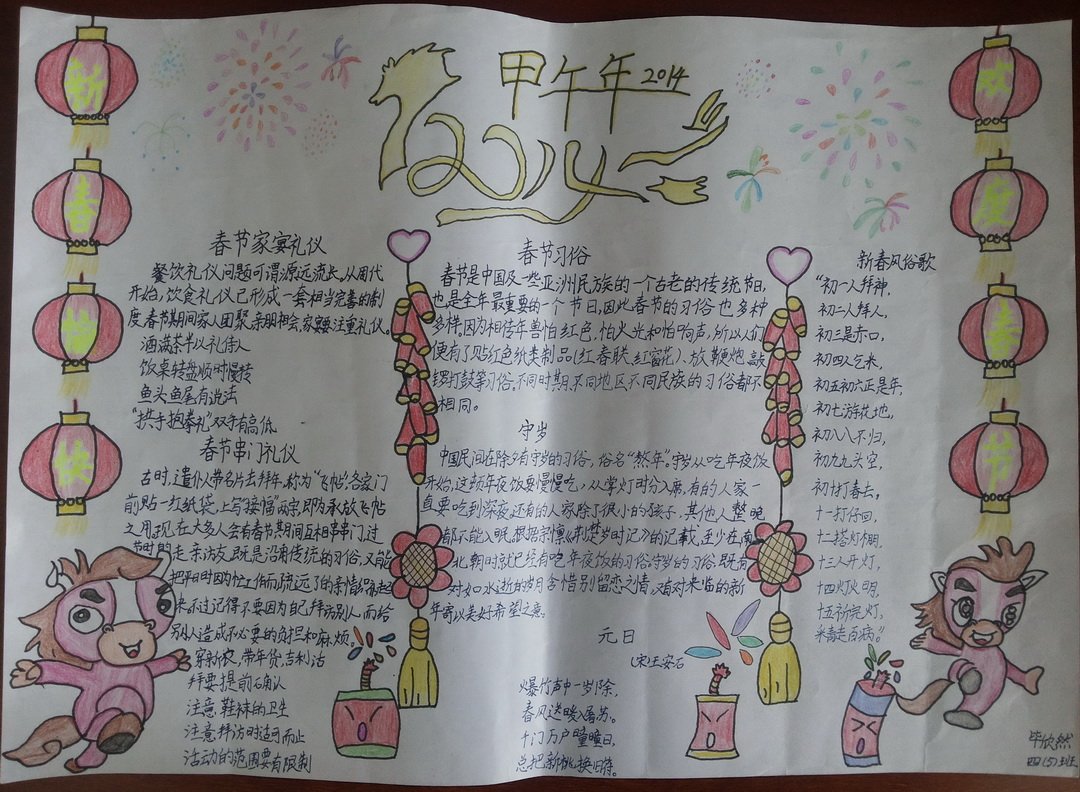 甲午年 2014
新春愉快
欢度春节
春节家宴礼仪
餐饮礼仪问题可谓源远流长,从周代
开始,饮食礼仪已形成一套相当完善的制
度,春节期间家人团聚,亲朋相会,家宴要注重礼仪。
酒满茶半以礼待人
饭桌转盘顺时慢转
鱼头鱼尾有说法
"拱手抱拳礼"双手有高低
春节串门礼仪
古时,遣仆人带名片去拜年,称为"飞帖",各家门
前贴一红纸袋,上写"接福"两字,即为承放飞帖
之用,现在大多人会有春节期间互相串串门过
节时的走亲访友,既是沿有传统的习俗,又能
把平时因为忙工作而疏远了的亲情
来,不过记得不要因为自己拜访别人而给
别人造成不必要的负担和麻烦。
穿新衣,带年货,吉利话
拜要提前确认
注意鞋袜的卫生
注意拜访时适可而止
活动的范围要有限制
春节习俗
春节是中国及一些亚洲民族的一个古老的传统节日,
也是全年最重要的一个节日,因此春节的习俗也多种
多样,因为相传年兽怕红色,怕火光和怕响声,所以人们
便有了贴红色纸类制品(红春联、红窗花)、放鞭炮、敲
锣打鼓等习俗,不同时期、不同地区不同民族的习俗都不
相同。
守岁
中国民间在除夕有守岁的习俗,俗名"熬年",守岁从吃年夜饭
开始,这顿年夜饭要慢慢吃,从掌灯时分入席,有的人家一
直要吃到深夜,还有的人家除了很小的孩子,其他人整晚
都不能入眠,根据宗懔《荆楚岁时记》的记载,至少在南
北朝时就已经有吃年夜饭的习俗,守岁的习俗,既有
对如水逝的岁月含惜别留恋之情,又有对来临的新
年寄以美好希望之意。
元日
(宋)王安石
爆竹声中一岁除,
春风送暖入屠苏。
千门万户曈曈日,
总把新桃换旧符。
新春风俗歌
"初一人拜神,
初二人拜人,
初三是赤口,
初四人乞米,
初五初六正是年,
初七游花地,
初八八不归,
初九九头空,
初十打春去,
十一打仔回,
十二搭灯棚,
十三人开灯,
十四灯火明,
十五祈完灯,
采青走百病。"
毕欣然
四(5)班